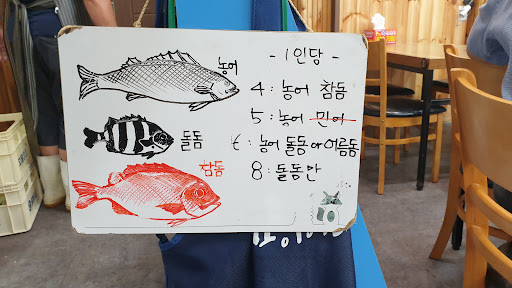 농어
돌돔
참돔
- 1인당 -
4 : 농어 참돔
5 : 농어 민어
6 : 농어 돌돔 or 어름돔
8 : 돌돔만